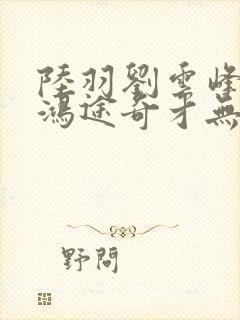 陸羽劉雲峰
鴻途奇才無
野問